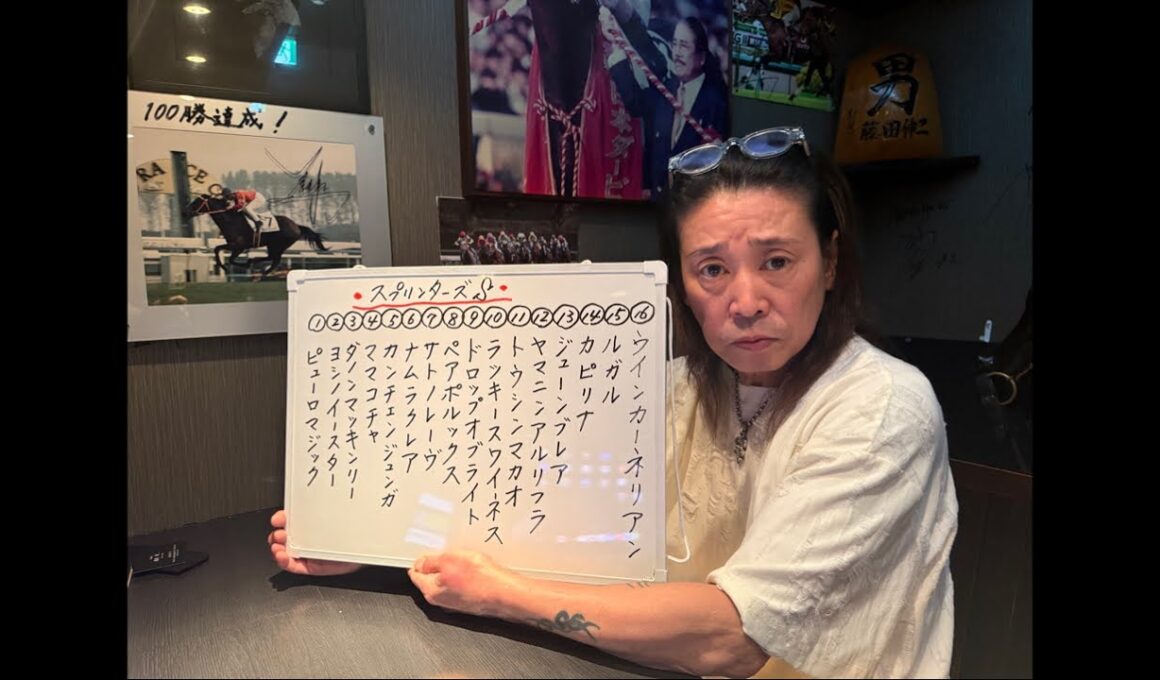 100勝達成！
RACE CO
7
本ダービ
男
藤田伸二
・スプリンターズS・
①②③④⑤⑥⑦⑧⑨⑩⑪⑫⑬⑭⑮⑯
ピューロマジック
ヨシノイースター
ダノンマッキンリー
ママコチャ
カンチェンジュンガ
ナムラクレア
サトノレーヴ
ペアポルックス
ドロップオブライト
ラッキースワイーネス
トウシンマカオ
ヤマニンアルリフラ
ジューンブレア
カピリナ
ルガル
ウインカーネリアン